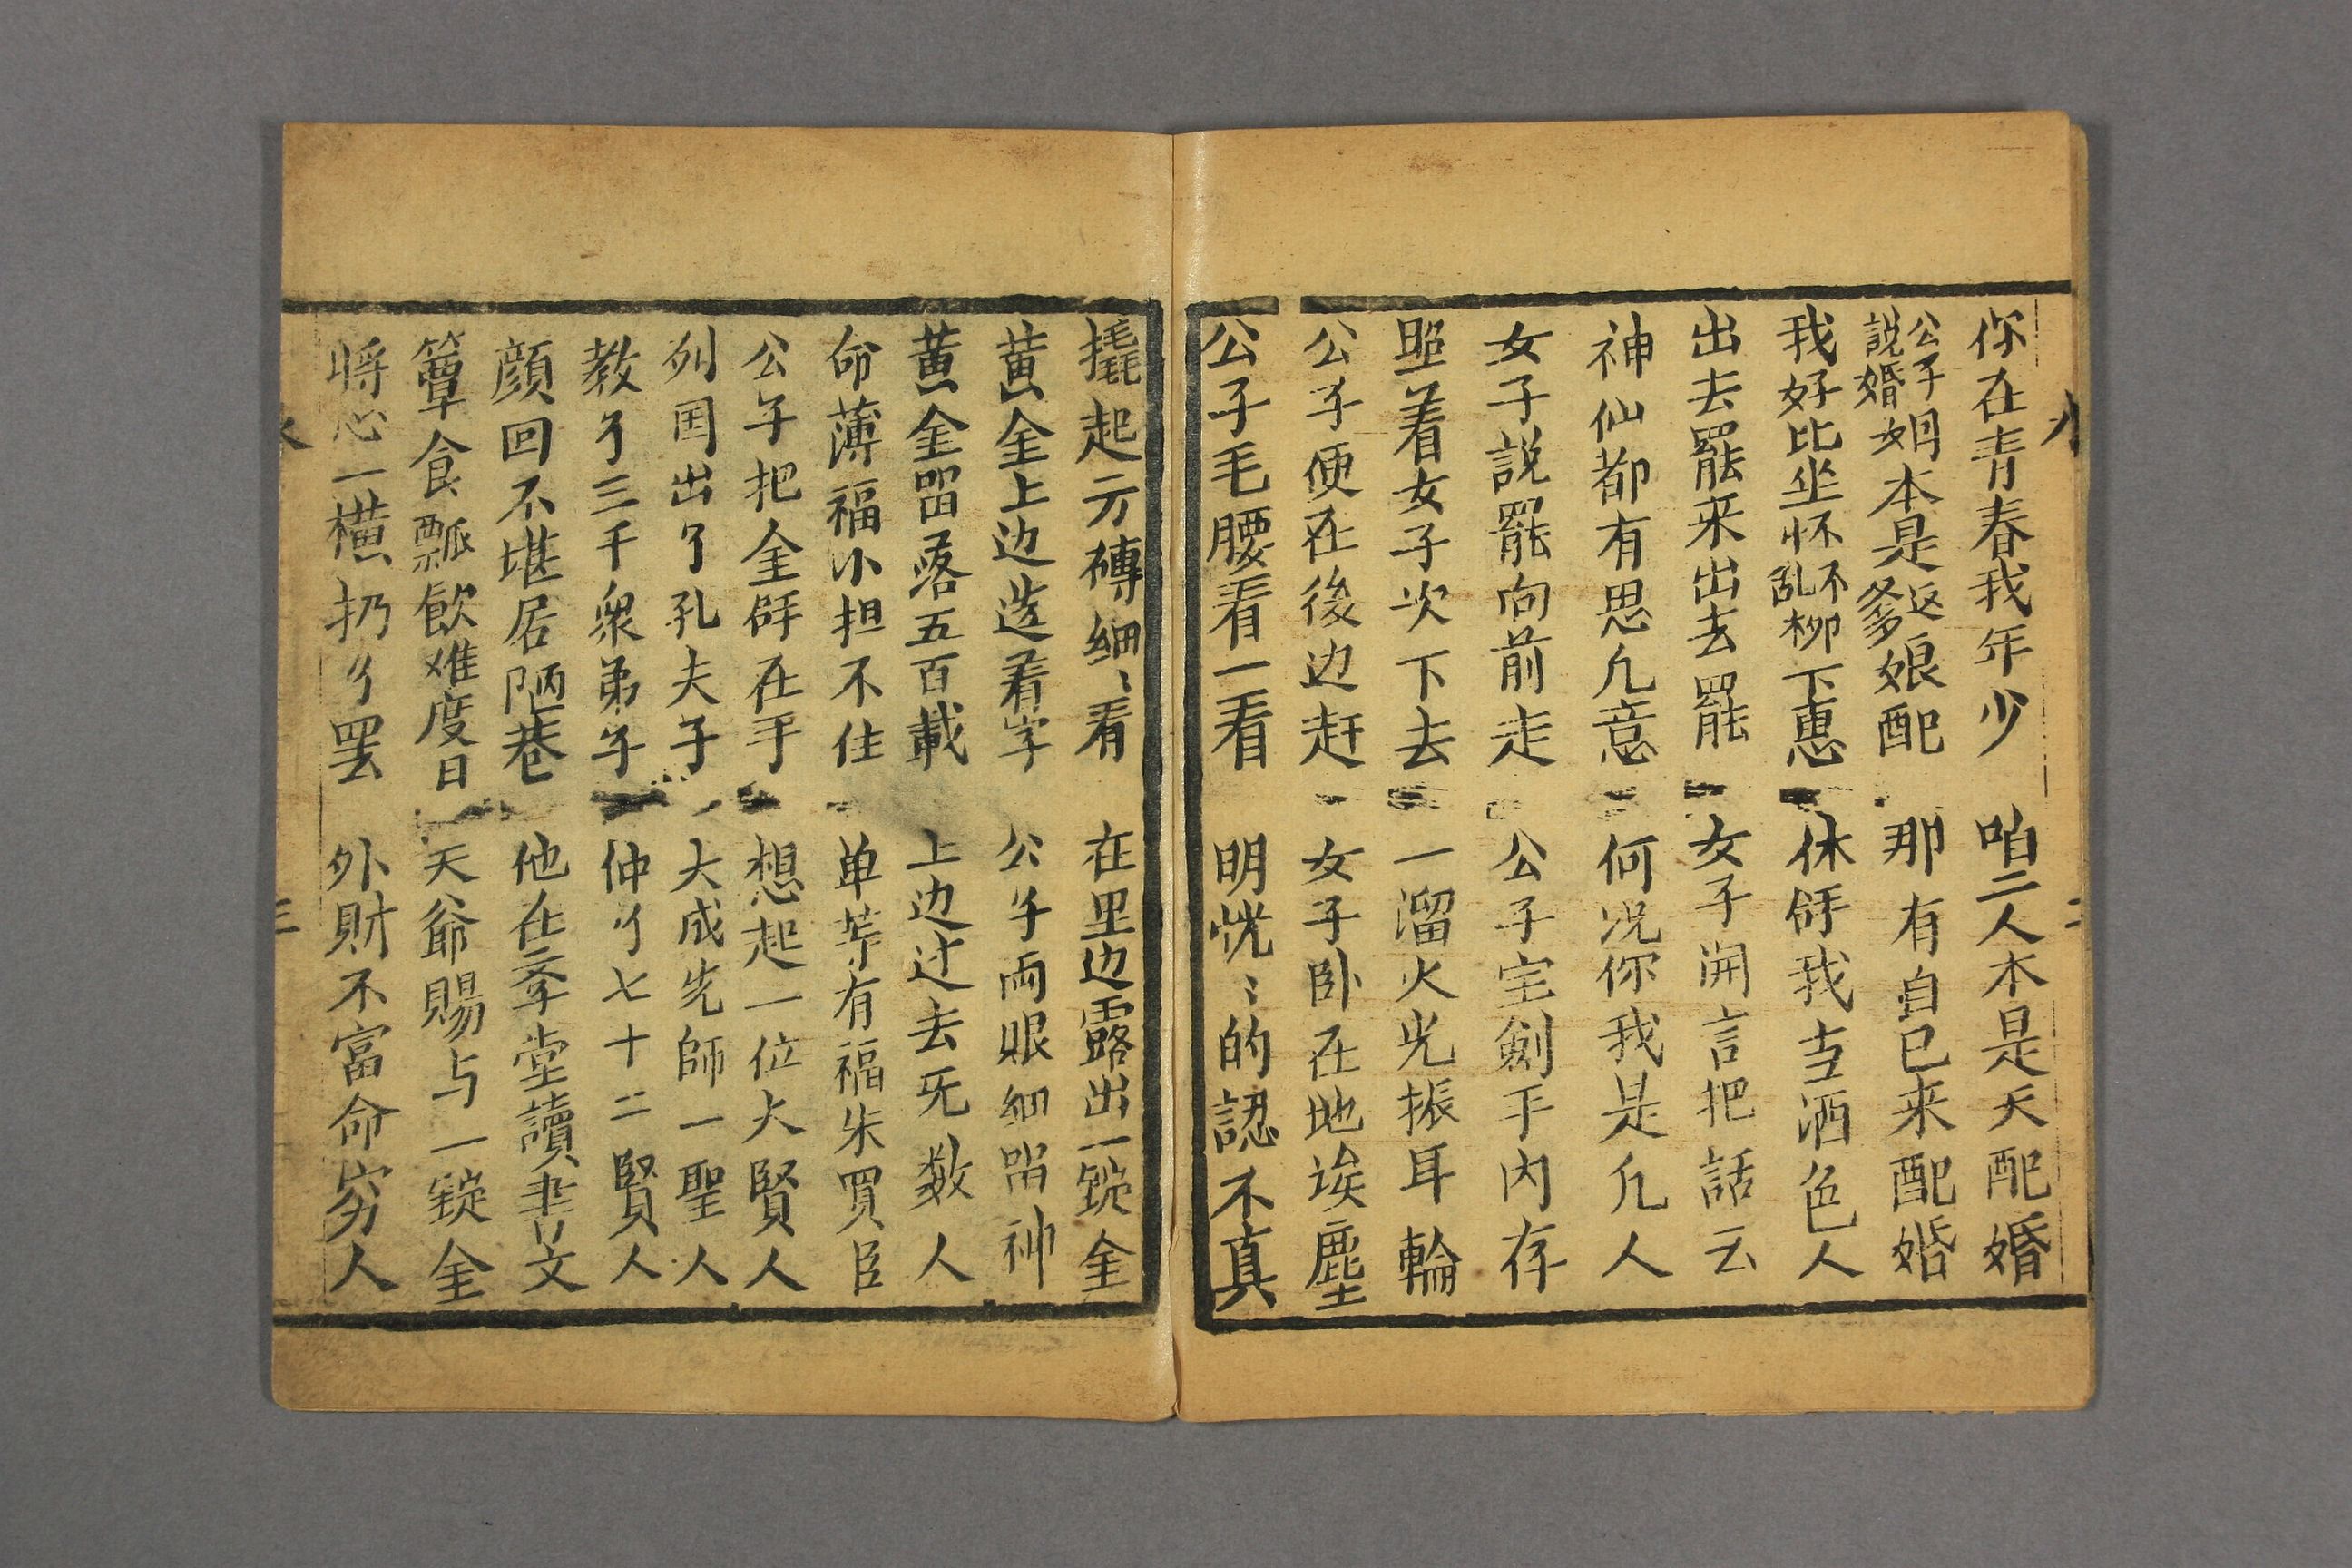 你在青春我年少 咱二人本是天配婚
公子說婚姻本是返爹娘配 那有自已来配婚
我好比坐怀不乱柳下惠 休伻我当酒色人
出去罷来出去罷 女子開言把話云
神仙都有思凢意 何况你我是凢人
女子說罷向前走 公子宝劍手内存
照着女子㳄下去 一溜火光振耳輪
公子便在後边赶 女子卧在地埃塵
公子毛腰看一看 明恍〻的認不真
撬起方磚細〻看 在里边露出一錠金
黄金上边造着字 公子両眼細留神
黄金留落五百載 上边过去旡数人
命薄福小担不住 单等有福朱買臣
公子把金伻在手 想起一位大賢人
列国出了孔夫子 大成先師一聖人
教了三千衆弟子 仲了七十二賢人
顔回不堪居陋巷 他在斈堂讀書文
簞食瓢飲难度日 天爺賜与一錠金
将心一横扔了罢 外財不富命穷人
三